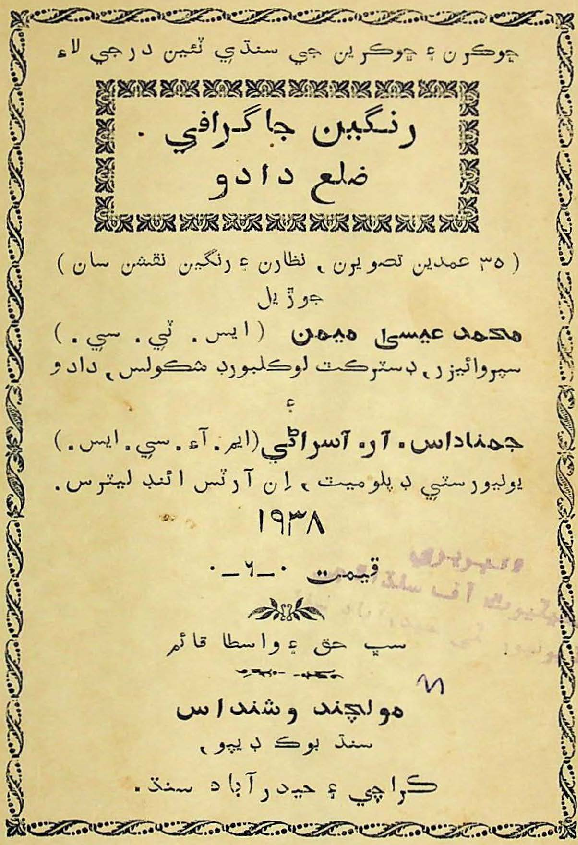 ڇوڪرن ۽ ڇوڪرين جي سنڌي ٽئين درجي لاءِ
رنگين جاگرافي .
ضلع دادو
( ٣٥ عمدين تصويرن, نظارن ۽ رنگين نقشن سان )
جوڙيل
محمد عيسيٰ ميمن (ايس. ٽي. سي.)
سپروائيزر, ڊسٽرڪٽ لوڪلبورڊ شڪولس, دادو
۽
جمناداس. آر. آسراڻي (ايم. آءِ. سي. ايس.)
يونيورسٽي ڊپلوميٽ, اِن آرٽس ائنڊ ليٽرس.
١٩٣٨
قيمت ٠_٦_٠
سڀ حق ۽ واسطا قائم
مولچند وشنداس
سنڌ بوڪ ڊيپو,
ڪراچي ۽ حيدرآباد سنڌ.